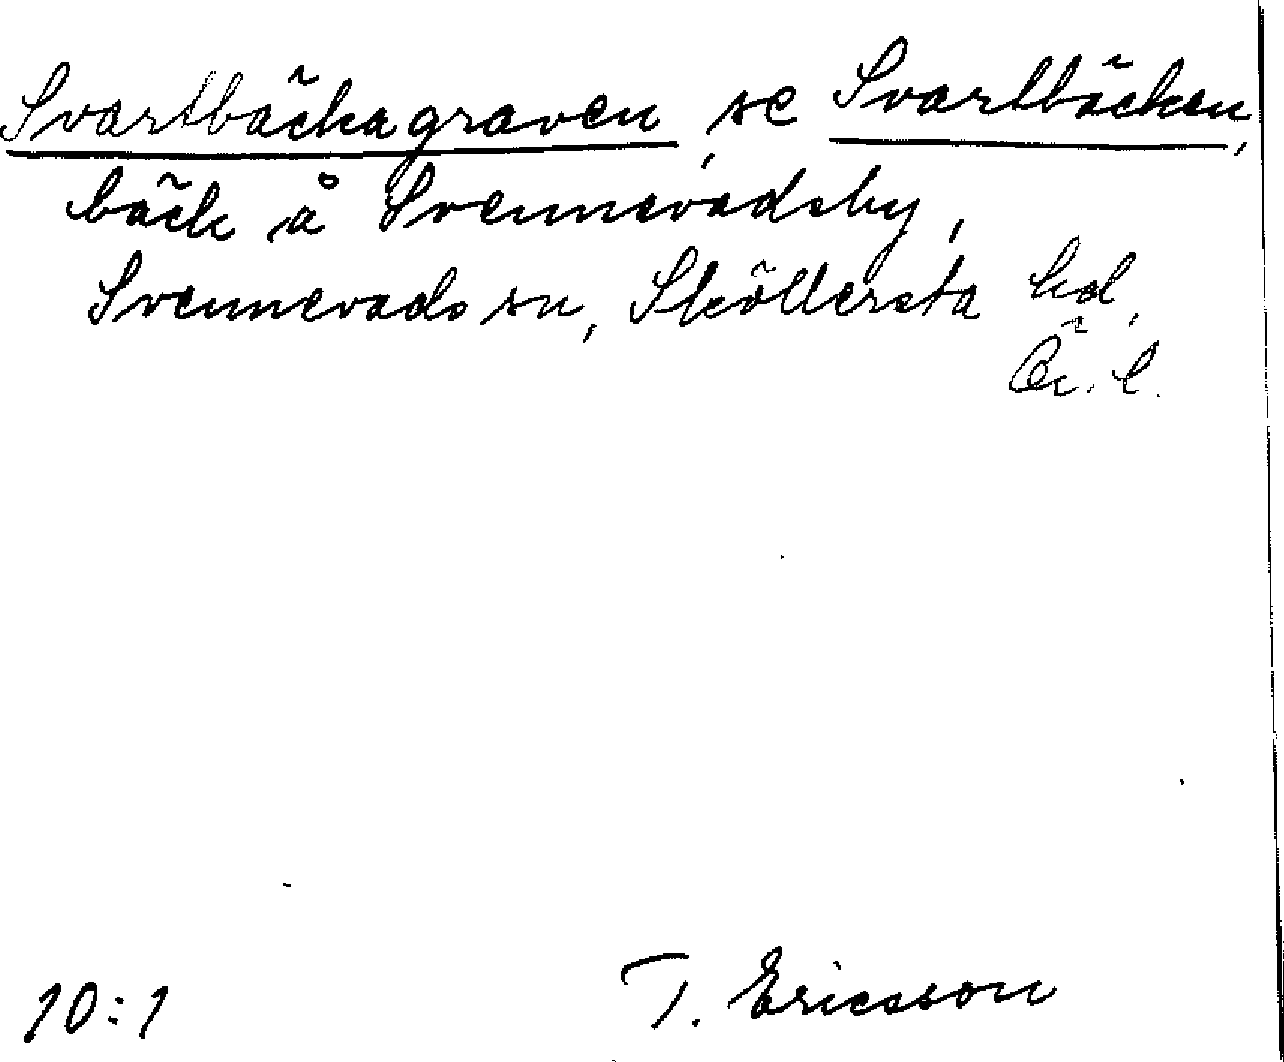 Svartbäckagraven, se Svartbäcken,
bäck å Svennevadsby,
Svennevads sn, Sköllersta hd,
Ör. l.
10:1 T. Ericsson